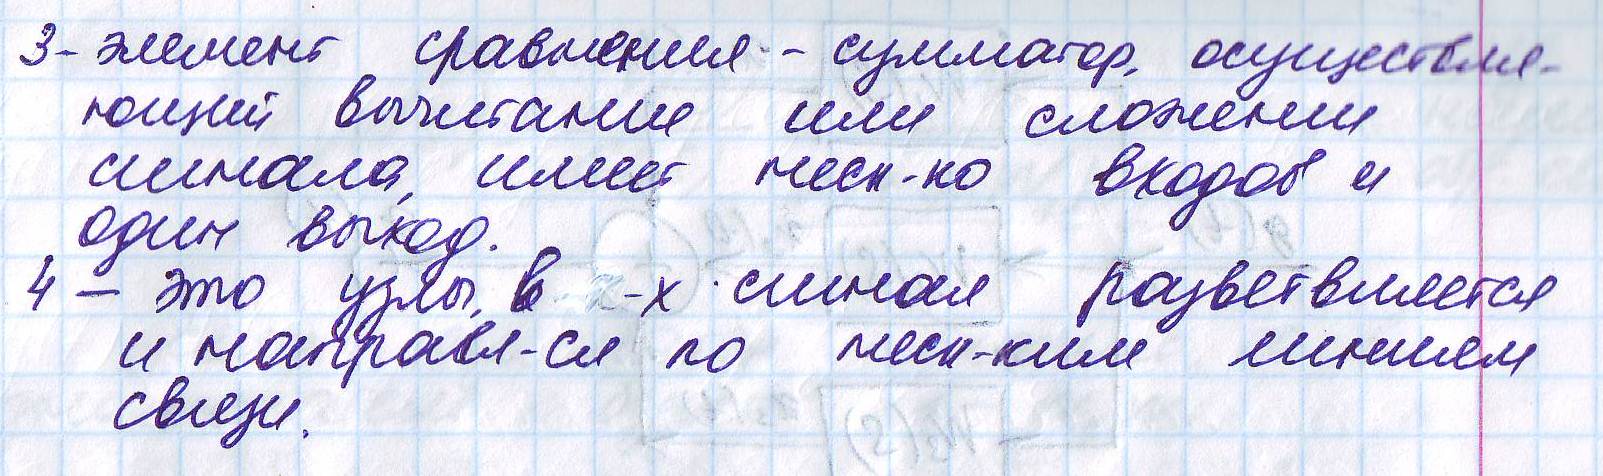 3- элемент сравнения - сумматор, осуществля-
ющий вычитание или сложение
сигнала, имеет неск-ко входов и
один выход.
4 - это узлы, в к-х сигнал разветвляется
и направл-ся по неск-ким линиям
связи.